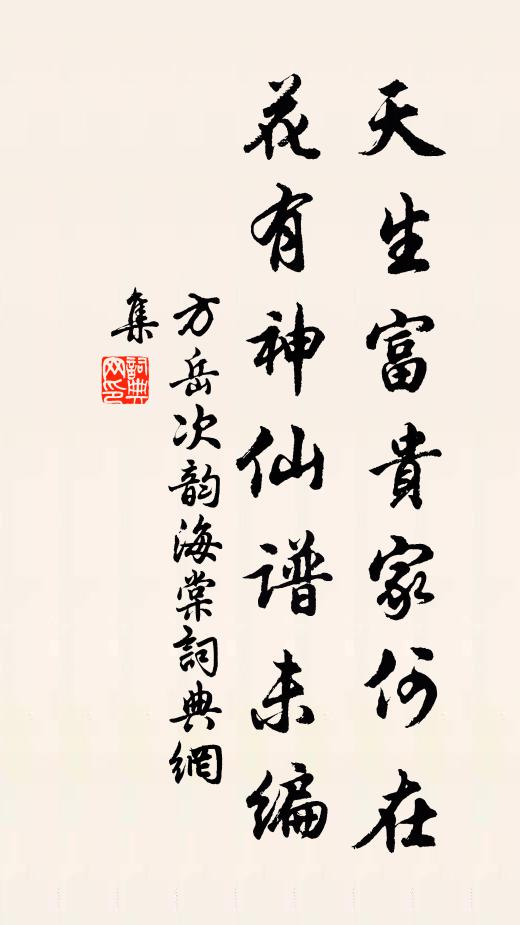 天生富貴家何在
花有神仙谱未编
方岳次韵海棠詞典網
集
詞典网印